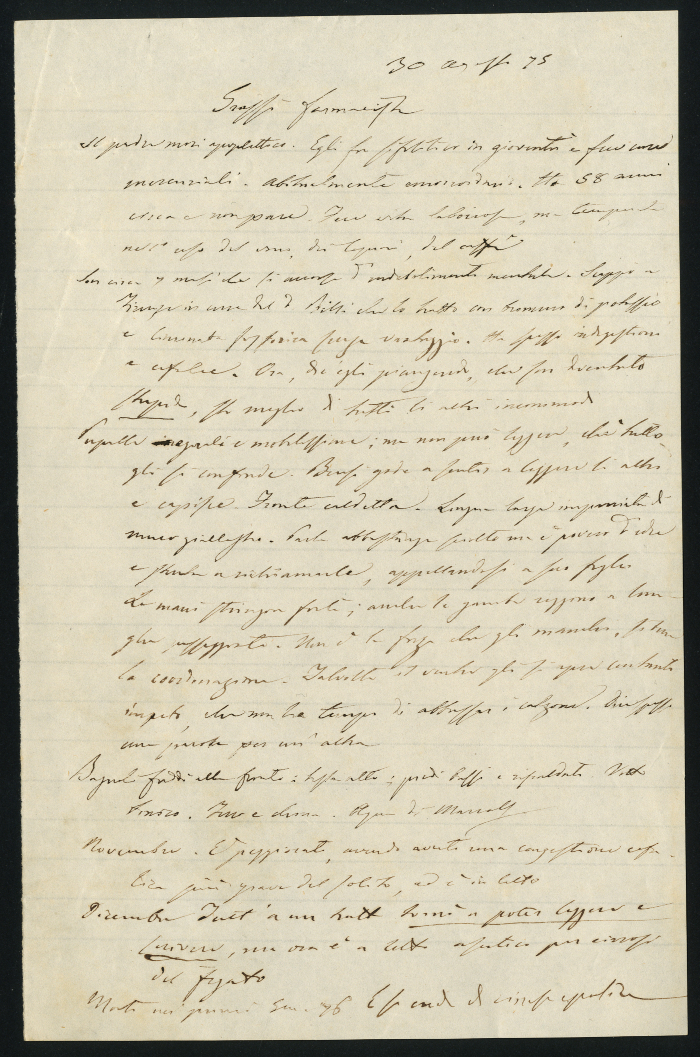 30 agosto 75
Grassi farmacista
Il padre morì apoplettico. Egli fu sifilitico in gioventù e fece cure
mercuriali. Abitualmente emorroidario. Ha 58 anni
circa e non pare. Fece vita laboriosa, ma temperata
nell'uso del vino, dei liquori, del caffè
Son circa 7 mesi che si accorse d'indebolimento mentale. Suppo a
in cura del D. che lo trattò con bromuro di potassio
e senza vantaggio. Ha spesso indigestioni
e cefalee. Ora, dic'egli piangendo, che son diventato
stupido, sto meglio di tutti li altri incommodi
Pupille eguali e mobilissime; ma non può leggere, chè tutto
gli si confonde. Bensì gode a sentir a leggere li altri
e capisce. Fronte caldetta. Lingua larga impaniata di
muco giallastro. Parla abbastanza sciolto ma è povero d'idee
e stenta a richiamarle, appellandosi a suo figlio
Le mani stringon forte; anche le gambe reggono a lun-
ghe passeggiate. Non è la forza che gli manchi, sibbene
la coordinazione. Talvolta il ventre gli si apre con tanto
impeto, che non ha tempo di abbassar i calzoni. Dice spesso
una parola per un'altra
Bagnoli freddi alla fronte: testa alta: piedi bassi e riscaldati. Vitto
tonico. Ferro e china. Acqua di
Novembre. È peggiorato, avendo avuto una congestione cefa-
lica più grave del solito, ed è in letto
Dicembre Tutt'a un tratto tornò a poter leggere e
scrivere, ma ora è a letto ascitico per cirrosi
del fegato
Morto nei primi Gen. 76 di cirrosi epatica